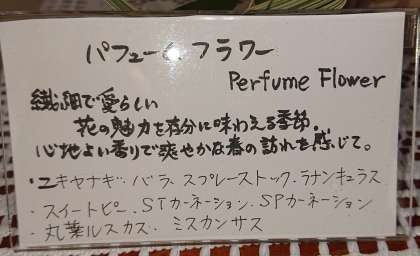 パフューム フラワー
Perfume Flower
繊細で愛らしい
花の魅力を存分に味わえる季節.
心地よい香りで爽やかな春の訪れを感じて。
・ユキヤナギ・バラ.スプレーストック.ラナンキュラス
・スイートピー.STカーネーション.SPカーネーション
・丸葉ルスカス.ミスカンサス